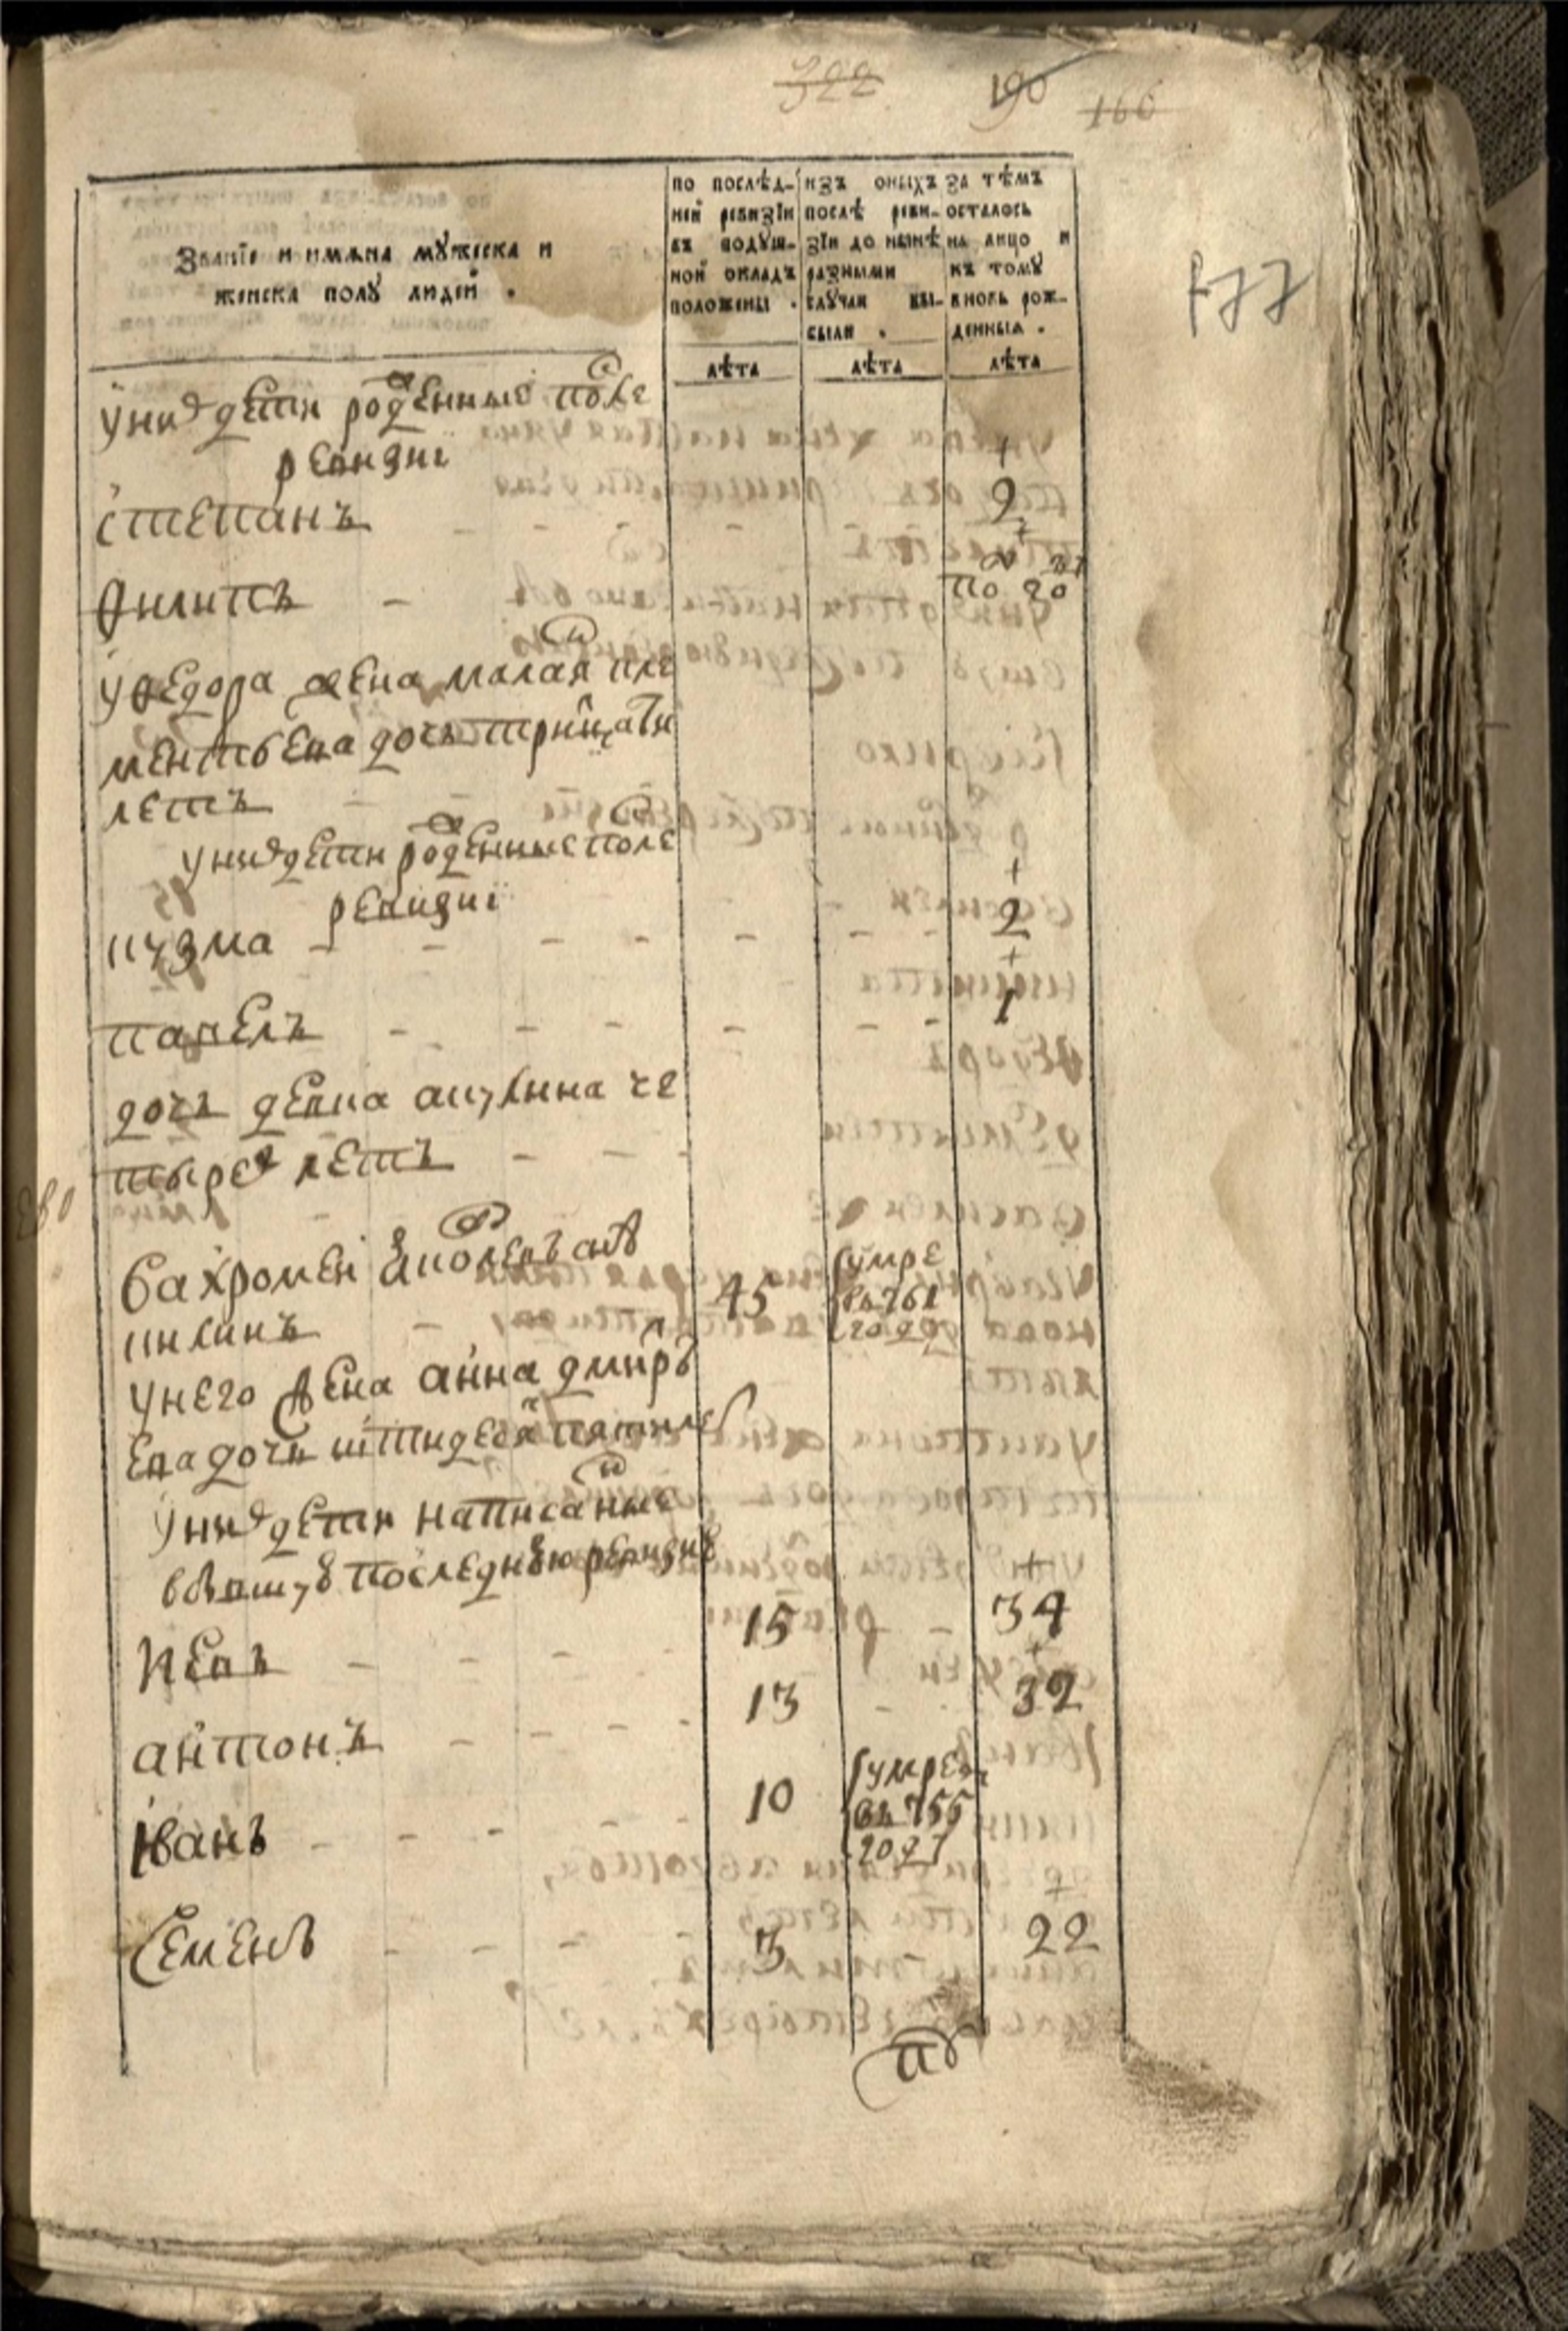 322 190 166
177
Званїе и имѧна мꙋжеска и
женска полꙋ людей .
по послѣд-
ней ревизїи
въ подꙋш-
ной окладъ
положены .
изъ оныхъ
послѣ реви-
зїи до нынѣ
разными
слꙋчаи вы-
были .
за тѣмъ
осталось
на лицо и
къ томꙋ
вновь рож-
денныя .
лѣта лѣта лѣта
у них дети рожденные после
ревизиі
степанъ 2
филипъ по году
у федора жена маланя кле
ментьева дочь тритцати
летъ
у них дети рожденные после
ревизиі
кузма 2
павелъ 1
дочь девка акулина че
тырех летъ
вахромеи
килинъ 45 умре
въ 761
году
у него жена анна дмитр
ева дочь штидесят пяти лет
у них дети написанные
в бывшую последнюю ревизию
иевъ 15 34
антонъ 13 32
іванъ 10 умре
въ 755
году
Семенъ 3 22